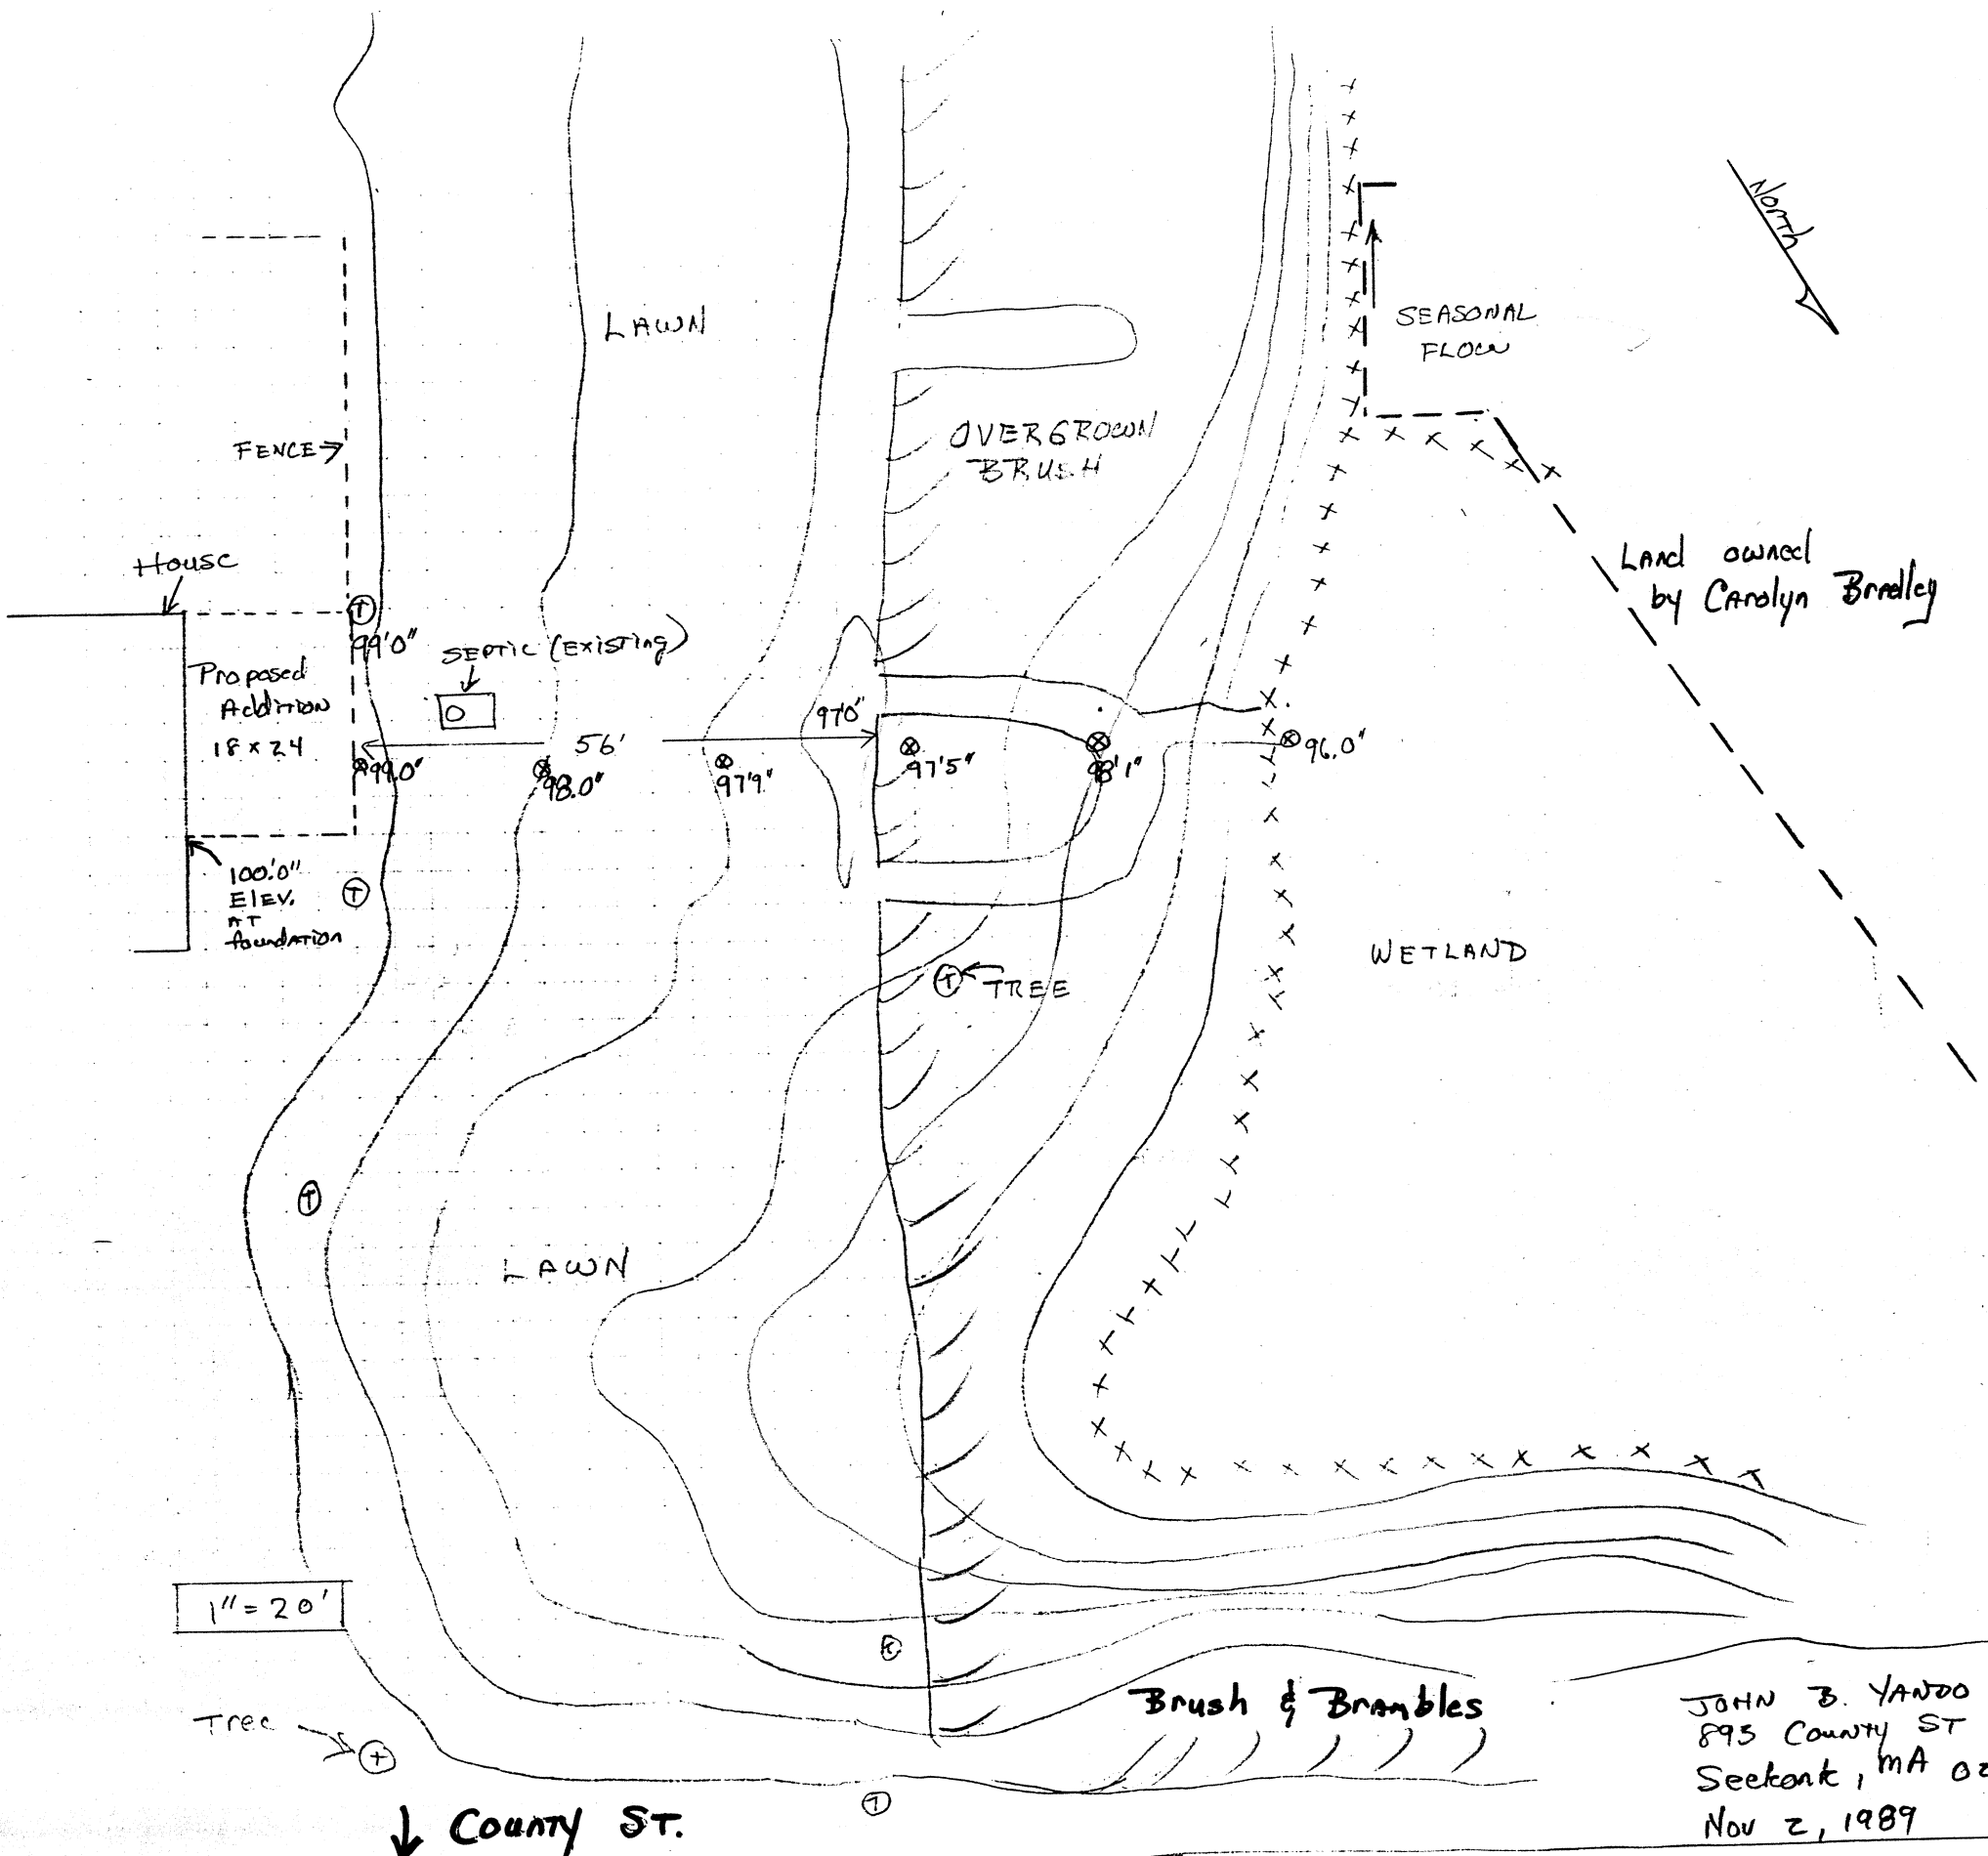 North
LAWN
SEASONAL
FLOW
FENCE
OVERGROWN
BRUSH
House
Land owned
by Carolyn Bradley
99'0"
SEPTIC (Existing)
Proposed
Addition
18 x 24
97'0"
56'
99.0"
98.0"
97'9"
97'5"
98'1"
96.0"
100'.0"
Elev.
AT
foundation
WETLAND
T
T
T
TREE
T
LAWN
1" = 20'
Brush & Brambles
Tree
JOHN B. YANDO
County ST
Seekonk, MA 02
Nov 2, 1989
County ST.